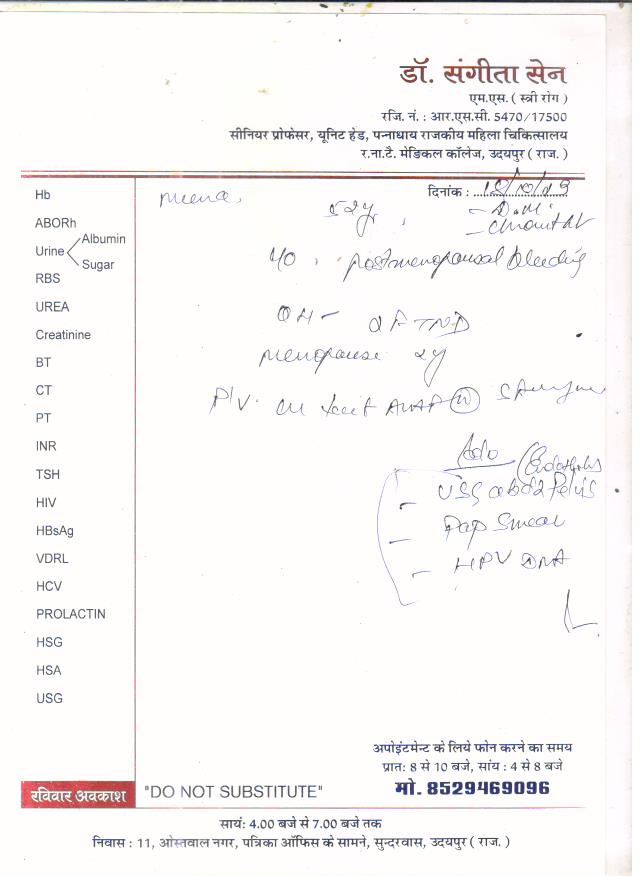 डॉ. संगीता सेन
एम.एस. ( स्त्री रोग )
रजि. नं. : आर.एस.सी. 5470/17500
सीनियर प्रोफेसर, यूनिट हेड, पन्नाधाय राजकीय महिला चिकित्सालय
र.ना.टै. मेडिकल कॉलेज, उदयपुर ( राज. )
दिनांक :
Hb
ABORh
Urine Albumin
Sugar
RBS
UREA
Creatinine
BT
CT
PT
INR
TSH
HIV
HBsAg
VDRL
HCV
PROLACTIN
HSG
HSA
USG
Meena,
52y,
- D.M.
postmenopausal bleeding
OH -
menopause 2y
P/V.
Adv
- USG abd & Pelvis
- Pap Smear
- HPV DNA
अपोइंटमेन्ट के लिये फोन करने का समय
प्रात: 8 से 10 बजे, सांय : 4 से 8 बजे
मो. 8529469096
रविवार अवकाश
"DO NOT SUBSTITUTE"
सायं: 4.00 बजे से 7.00 बजे तक
निवास : 11, ओस्तवाल नगर, पत्रिका ऑफिस के सामने, सुन्दरवास, उदयपुर ( राज. )